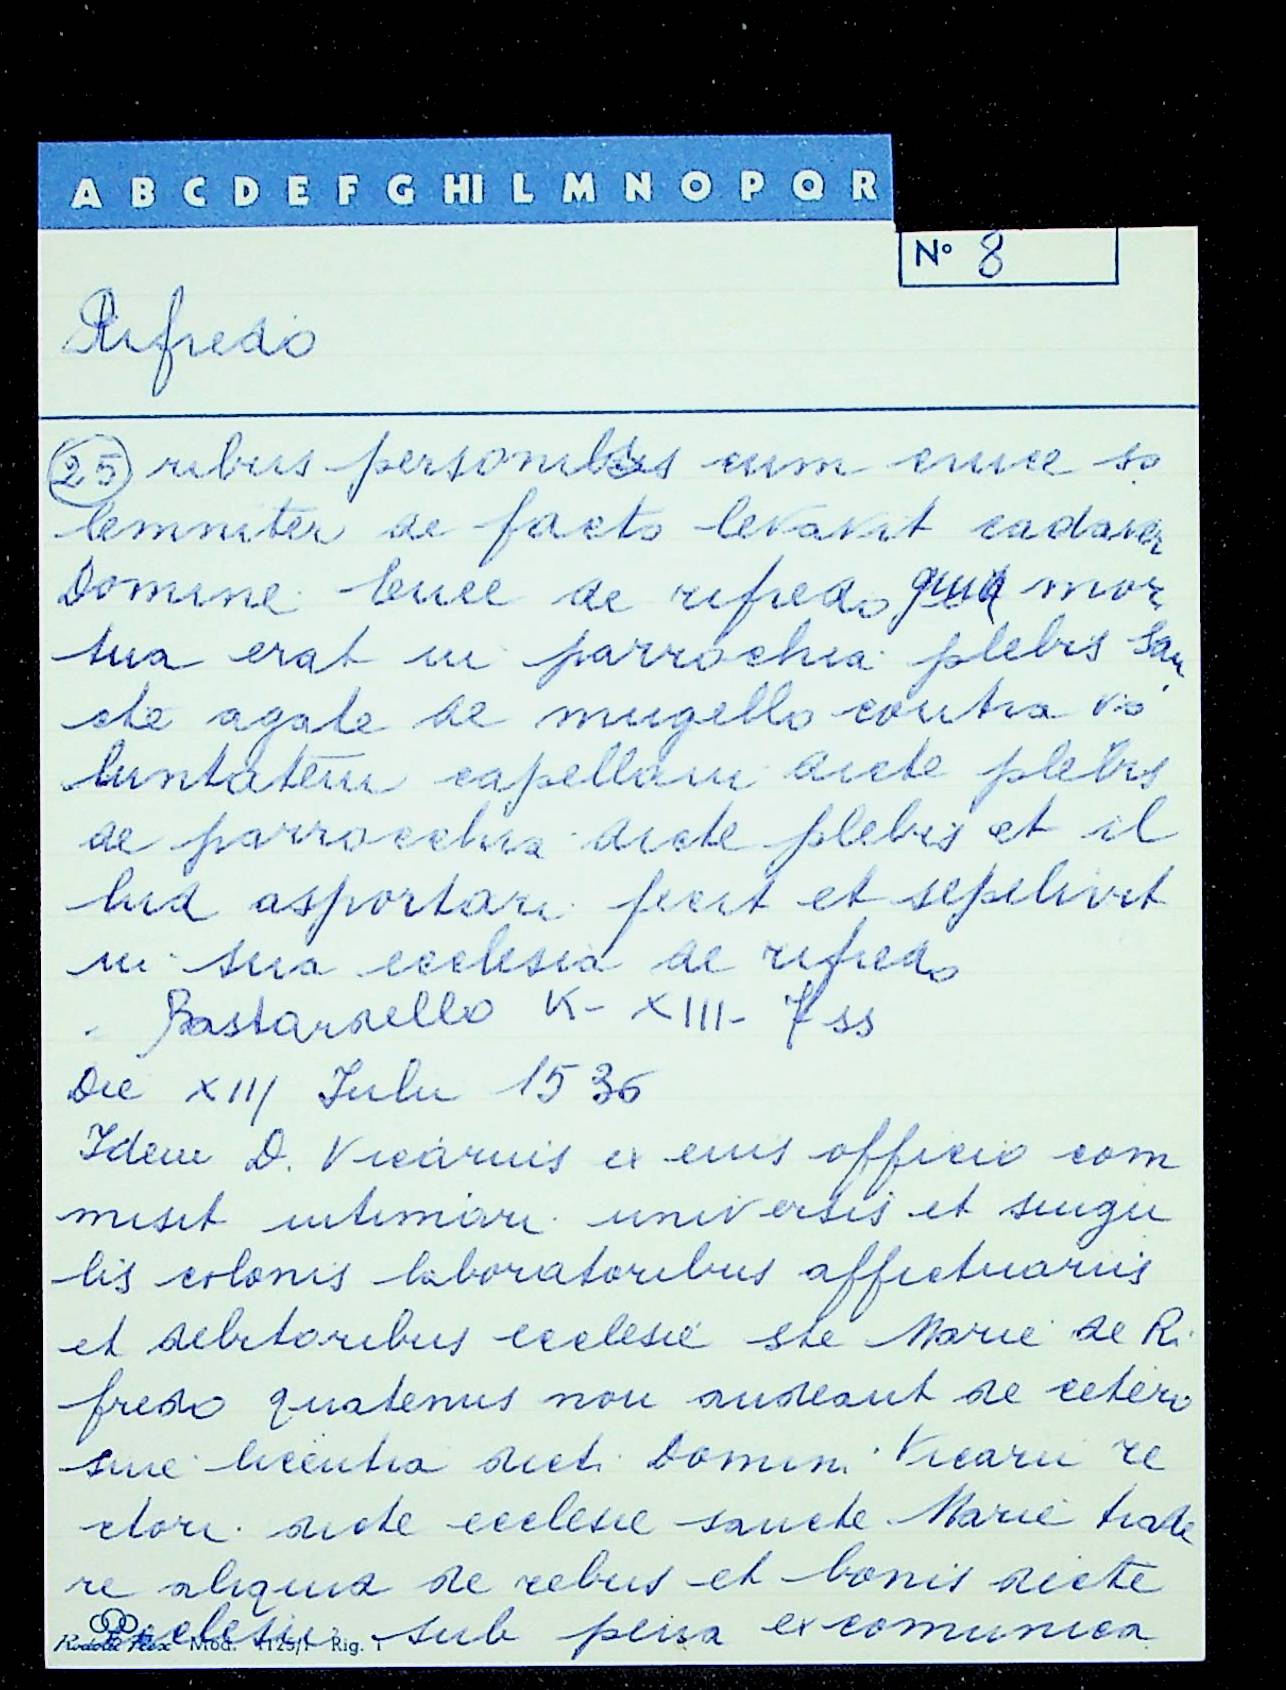 A B C D E F G HI L M N O P Q R
N° 8
Rifredo
25 ribus personibus cum cruce so
lemniter de facto levavit cadaver
Domine Luce de rifredo mor
tua erat in parrochia plebis San
cte agate de mugello contra vo
luntatem capellani dicte plebis
de parrocchia dicte plebis et il
lud asportari fecit et sepelivit
in sua ecclesia de rifredo
Bastardello K- XIII- 7 ss
Die XIII Iulii 1536
Idem D. Vicarius ex eius officio com
misit intimari universis et singu
lis colonis laboratoribus affictuariis
et debitoribus ecclesie Ste Marie de Ri
fredo quatenus non audeant de cetero
sine licentia dicti Domini Vicarii re
ctori dicte ecclesie sancte Marie trade
re aliquid de rebus et bonis dicte
ecclesie sub pena excomunica
Mod. 4125/1 Rig. 1